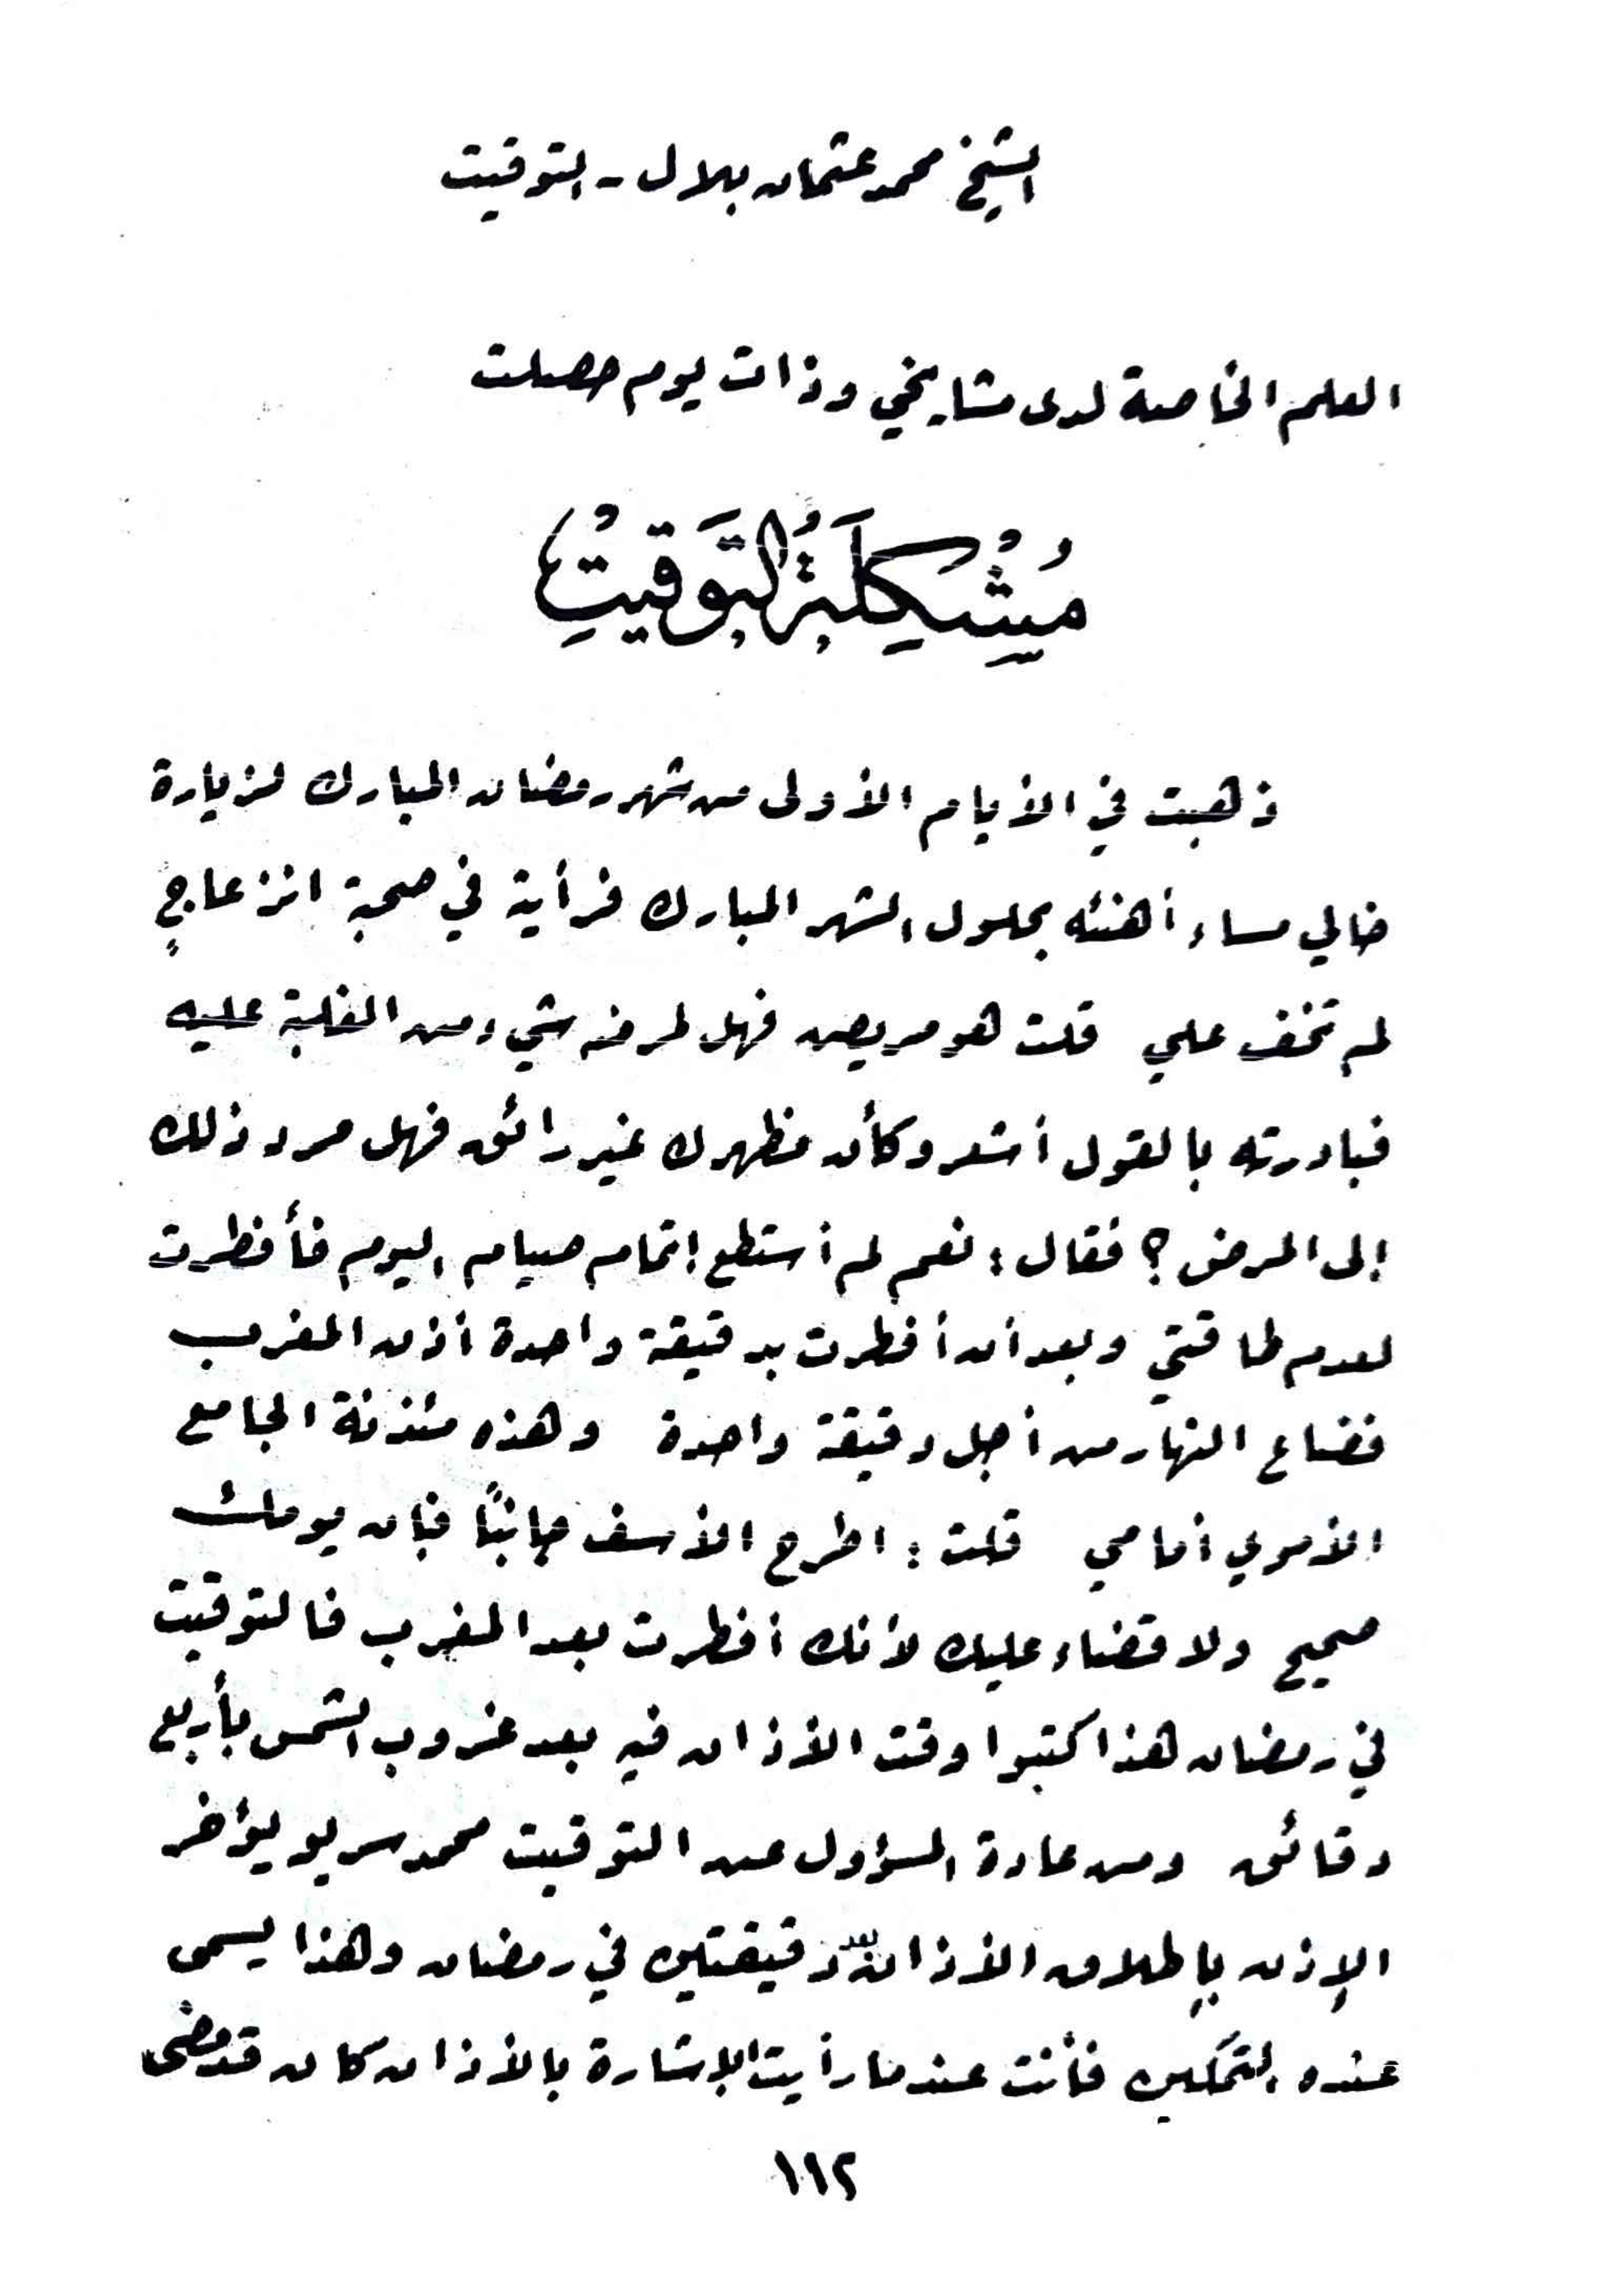 الشيخ محمد عثمان بلال - التوقيت
العلم الخاصة لدى مشايخي وذات يوم حصلت
مُشْكِلَةُ التَّوقيتْ
ذهبت في الأيام الأولى من شهر رمضان المبارك لزيارة
خالي مساء أهنئه بحلول الشهر المبارك فرأية في صحبة انزعاجٍ
لم تخف علي قلت هو مريض فهل لمرضه شيء من الغلبة عليه
فبادرته بالقول أشعر وكأن مظهرك غير رائق فهل مرد ذلك
إلى المرض ؟ فقال : نعم لم أستطع إتمام صيام اليوم فأفطرت
لعدم طاقتي وبعد أن أفطرت بدقيقة واحدة أذن المغرب
فضاع النهار من أجل دقيقة واحدة وهذه مئذنة الجامع
الأموي أمامي قلت : اطرح الأسف جانبًا فإن يومك
صحيح ولا قضاء عليك لأنك أفطرت بعد المغرب فالتوقيت
في رمضان هذا كتبوا وقت الأذان فيه بعد غروب الشمس بأربع
دقائق ومن عادة المسؤول عن التوقيت محمد سريو يؤخر
الإذن بإطلاق الأذان بعد دقيقتين في رمضان وهذا يسمى
عنده التمكين فأنت عندما رأيت الإشارة بالأذان كان قد مضى
١١٢